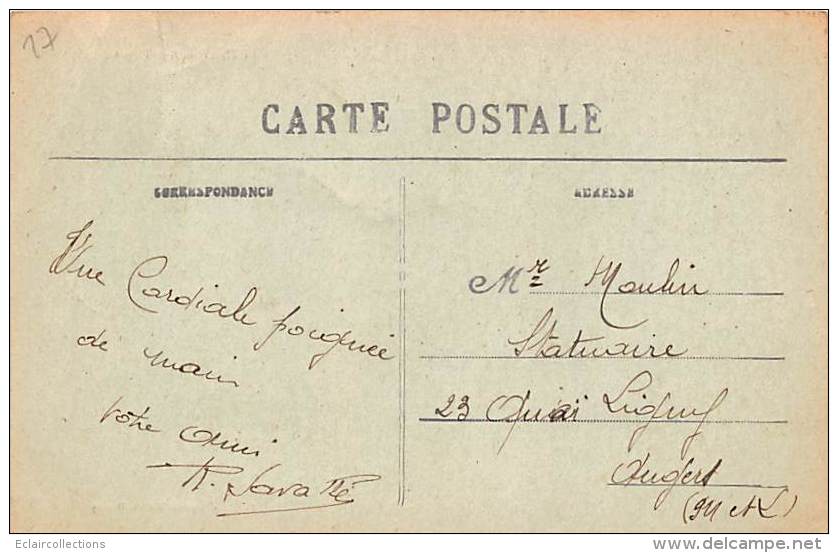 17
CARTE POSTALE
CORRESPONDANCE
ADRESSE
Une Cordiale poignée
de main
votre ami
R. Savatté
Mr Moulin
Statuaire
23 Quai Ligny
Angers
(M et L)
Eclaircollections
delcampe.net